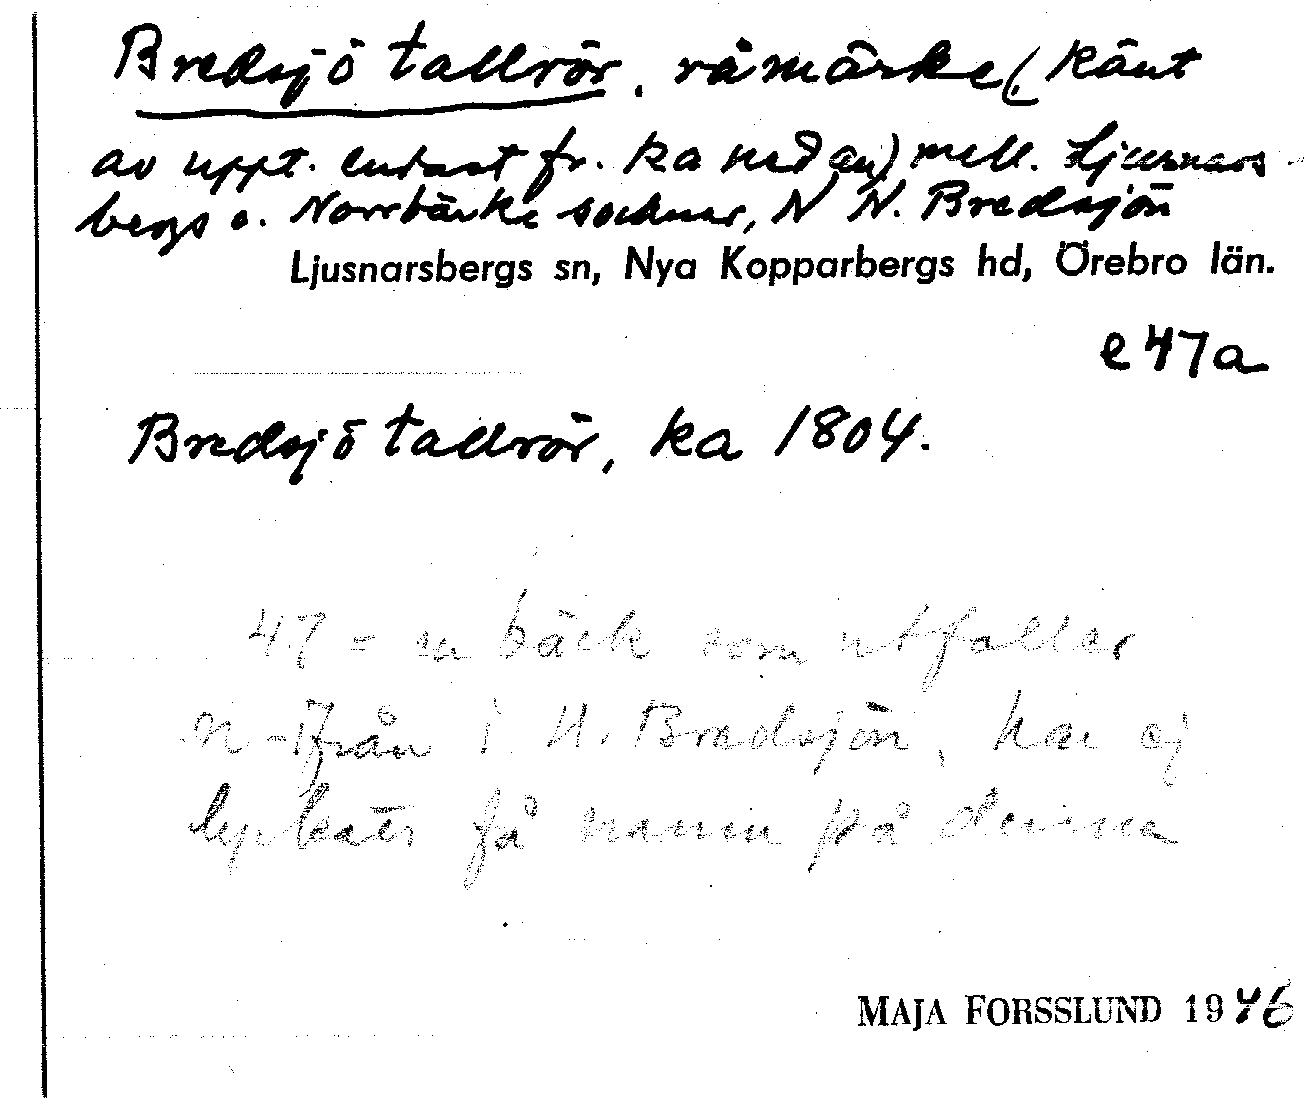 Bredsjö tallrör, råmärke (känt
av uppt. endast fr. ka nedan) mell. Ljusnars-
bergs o. Norrbärke socknar, N N. Bredsjön
Ljusnarsbergs sn, Nya Kopparbergs hd, Örebro län.
e 47a
Bredsjö tallrör, ka 1804.
47 = en bäck som utfaller
n-ifrån i N. Bredsjön, har ej
lyckats få namn på denna
MAJA FORSSLUND 1946